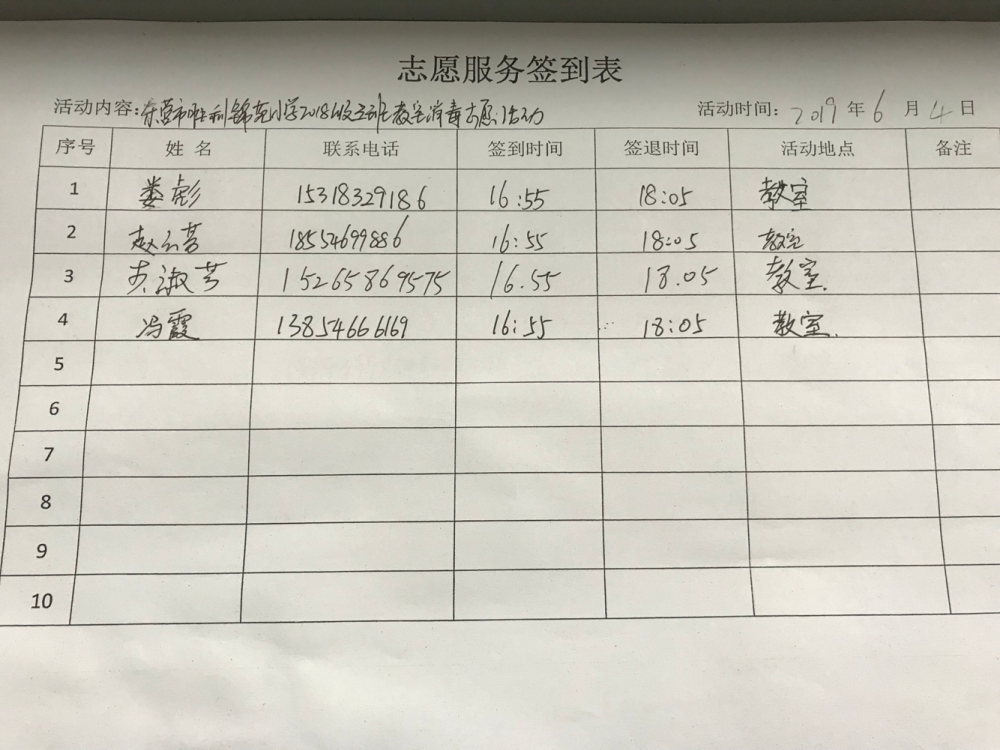 志愿服务签到表
活动内容:东营市胜利锦苑小学2018级五班教室消毒志愿活动 活动时间: 2019 年 6 月 4 日
序号 姓 名 联系电话 签到时间 签退时间 活动地点 备注
1 娄彪 15318329186 16:55 18:05 教室
2 赵云芳 18554699886 16:55 18:05 教室
3 淑芳 15265869575 16.55 18.05 教室.
4 冯霞 13854666169 16:55 18:05 教室.
5
6
7
8
9
10